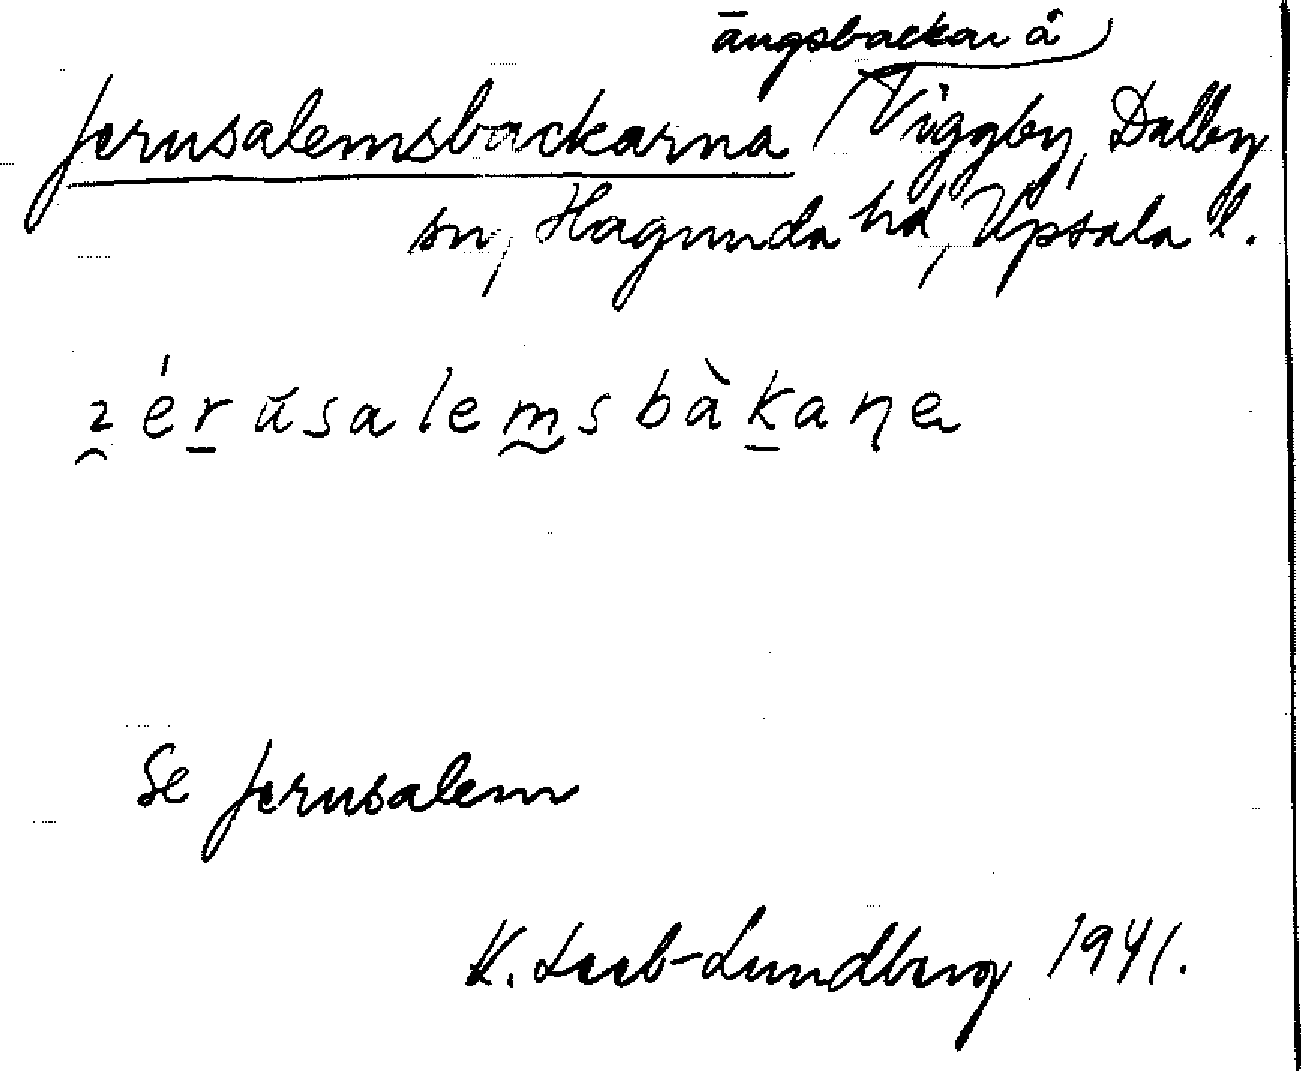 ängsbackar å
Jerusalemsbackarna Viggby, Dalby
sn, Hagunda hd, Upsala l.
Se Jerusalem
K. Leeb-Lundberg 1941.